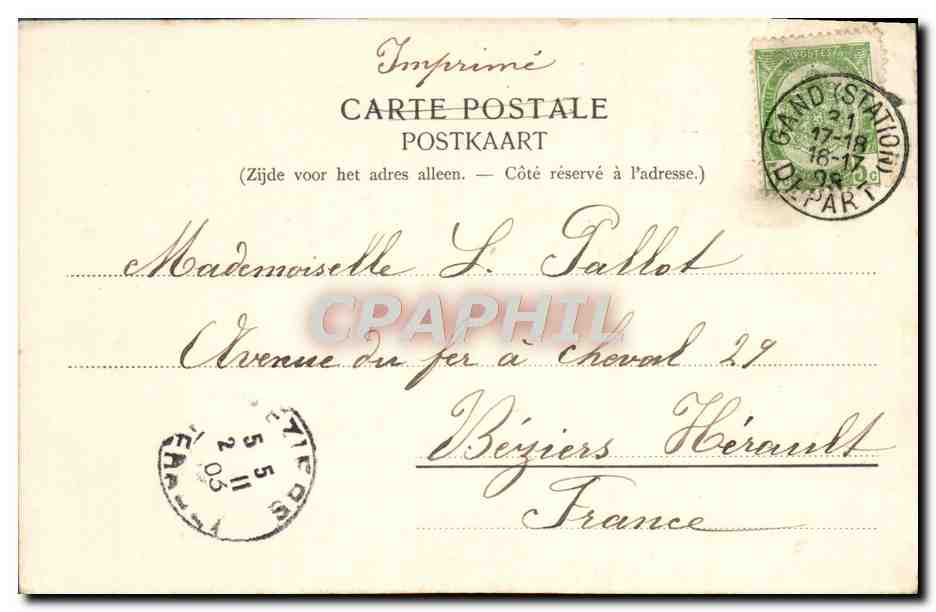 Imprimé
CARTE POSTALE
POSTKAART
(Zijde voor het adres alleen. — Côté réservé à l'adresse.)
GAND (STATION)
31
17-18
18-17
DEPART
5c
Mademoiselle L. Pallot
CPAPHIL
Avenue du fer à cheval 29
Béziers Hérault
France
5 5
2 11
03